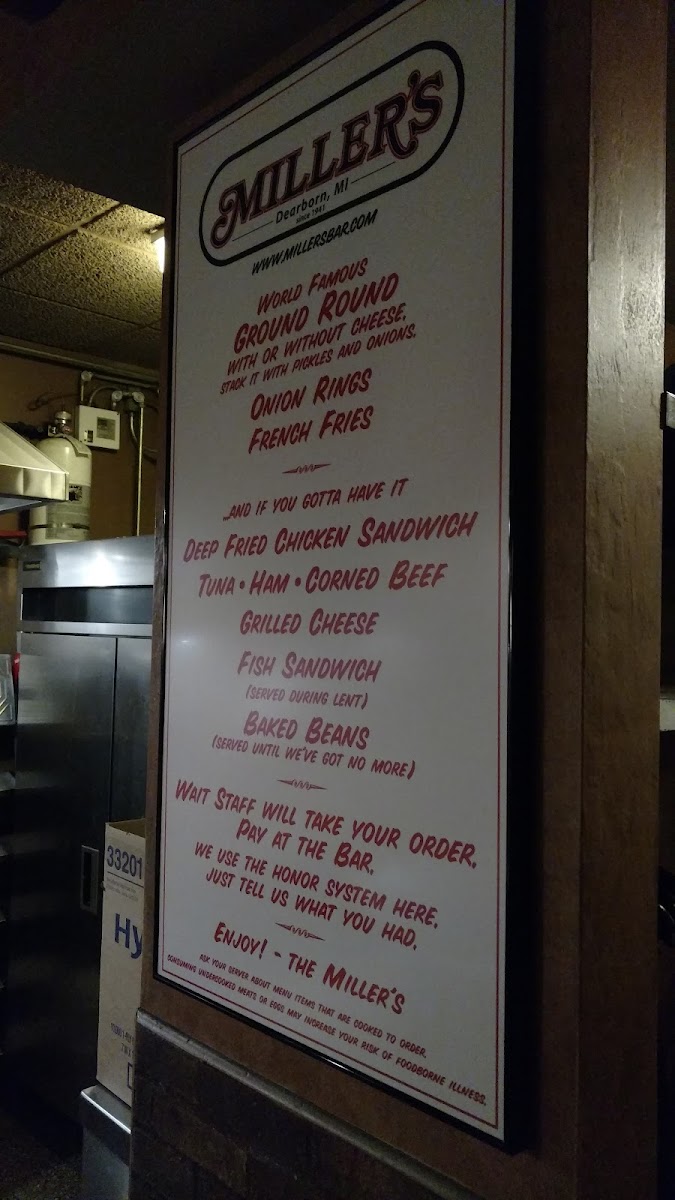 MILLER'S
Dearborn, MI
since 1941
WWW.MILLERSBAR.COM
WORLD FAMOUS
GROUND ROUND
WITH OR WITHOUT CHEESE.
STACK IT WITH PICKLES AND ONIONS.
ONION RINGS
FRENCH FRIES
...AND IF YOU GOTTA HAVE IT
DEEP FRIED CHICKEN SANDWICH
TUNA • HAM • CORNED BEEF
GRILLED CHEESE
FISH SANDWICH
(SERVED DURING LENT)
BAKED BEANS
(SERVED UNTIL WE'VE GOT NO MORE)
WAIT STAFF WILL TAKE YOUR ORDER.
PAY AT THE BAR.
WE USE THE HONOR SYSTEM HERE.
JUST TELL US WHAT YOU HAD.
ENJOY! - THE MILLER'S
ASK YOUR SERVER ABOUT MENU ITEMS THAT ARE COOKED TO ORDER.
CONSUMING UNDERCOOKED MEATS OR EGGS MAY INCREASE YOUR RISK OF FOODBORNE ILLNESS.
33201
Hy